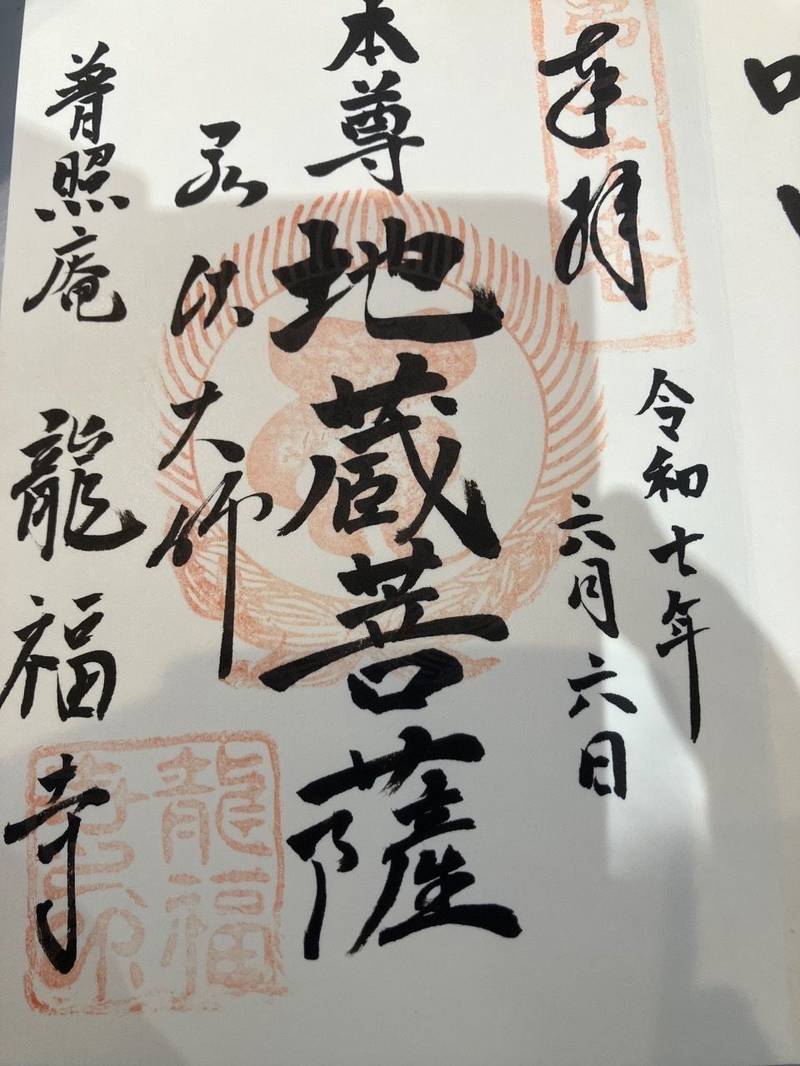 奉拝
令和七年
六月六日
本尊 地蔵菩薩
弘法大師
普照庵 龍福寺
龍福
寺印